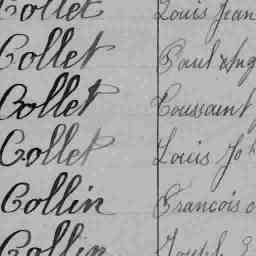 Collet Louis Jean
Collet Paul Aug
Collet Toussaint
Collet Louis Jo
Collin Francois
Collin Joseph